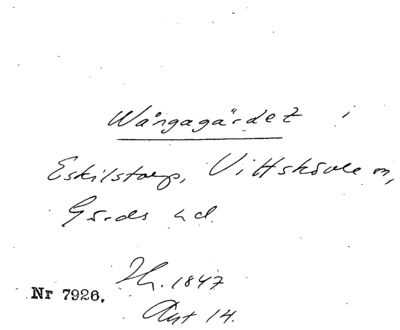 Wångagärdet i
Eskilstorp, Vittskövle sn,
Gärds hd.
Hr. 1847
Akt 14.
Nr 7926.